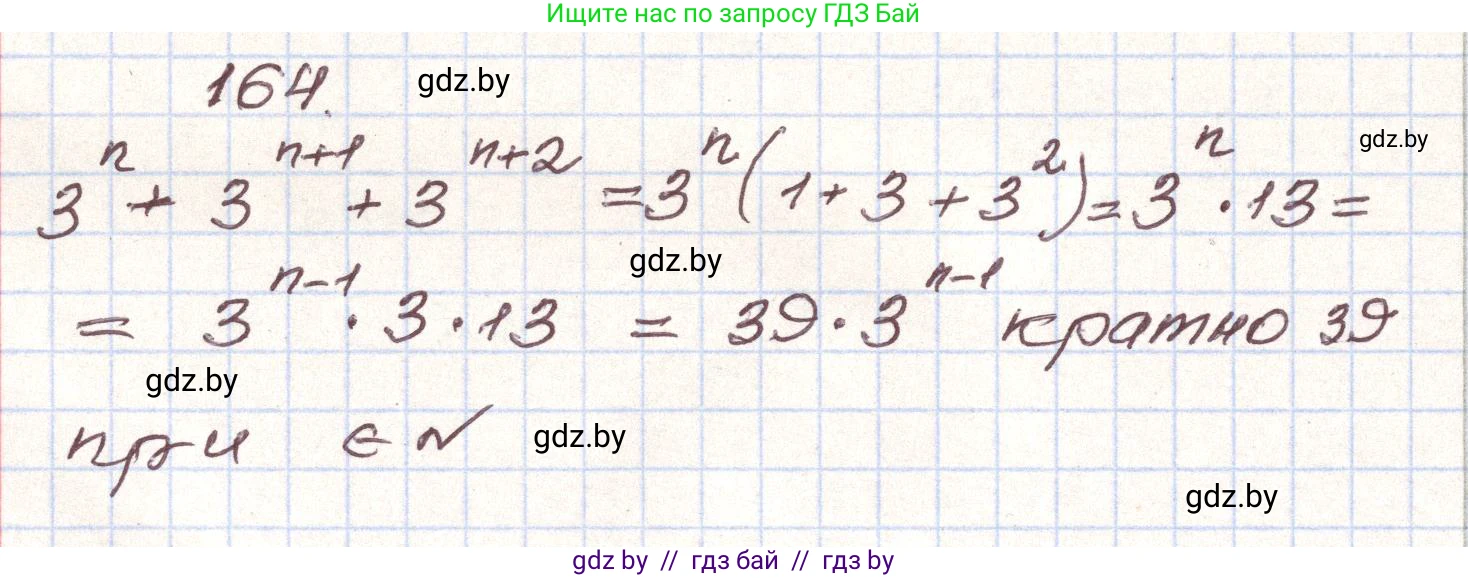 Ищите нас по запросу ГДЗ Бай
164. gdz.by
3^n + 3^{n+1} + 3^{n+2} = 3^n (1 + 3 + 3^2) = 3^n · 13 = gdz.by
gdz.by
= 3^{n-1} · 3 · 13 = 39 · 3^{n-1} кратно 39
gdz.by
при ∈ N gdz.by
gdz.by
gdz by // гдз бай // гдз by